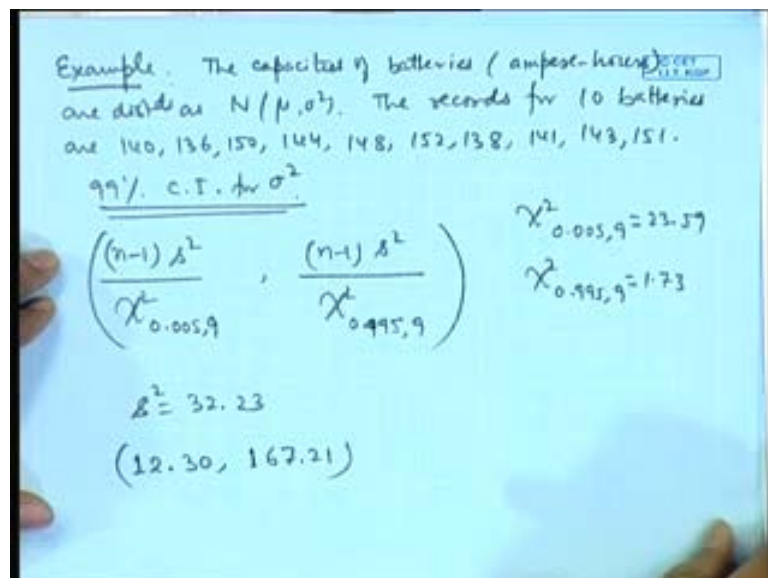 Example. The capacities of batteries (ampere-hours)
are distd as N(μ, σ²). The records for 10 batteries
are 140, 136, 150, 144, 148, 152, 138, 141, 143, 151.
99% C.I. for σ²
((n-1) s² / χ²0.005,9 , (n-1) s² / χ²0.995,9)
χ²0.005,9 = 23.59
χ²0.995,9 = 1.73
s² = 32.23
(12.30, 167.21)